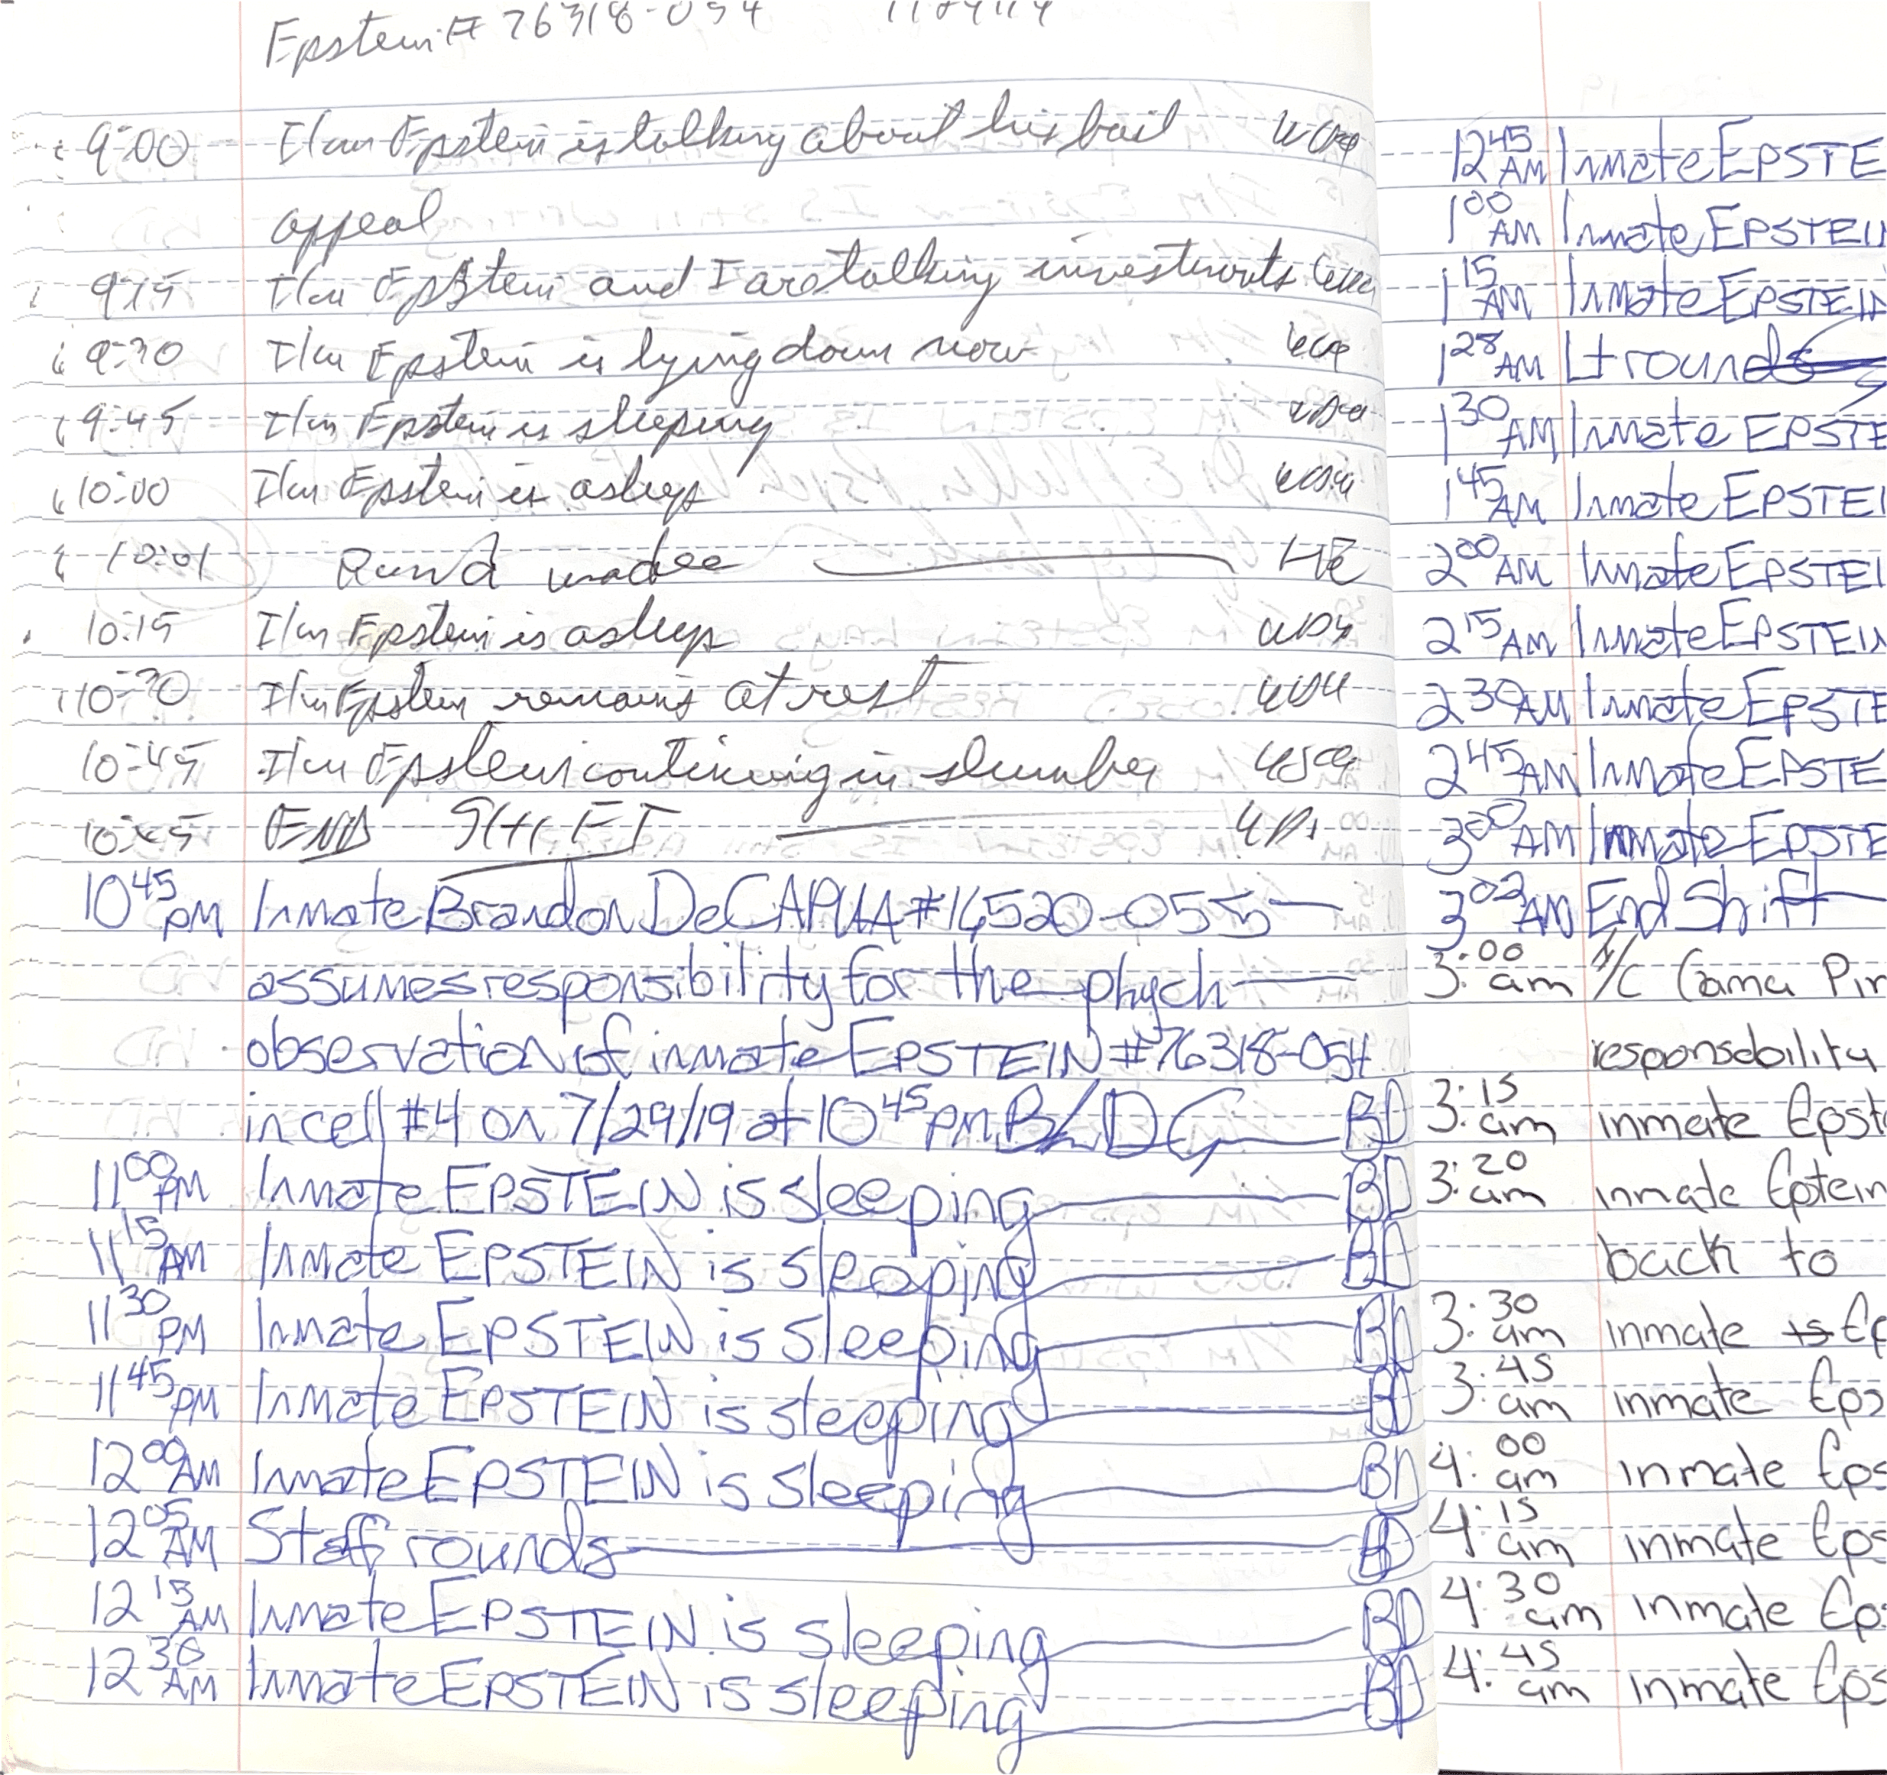 Epstein # 76318-054
9:00 I/m Epstein is talking about his bail
appeal
9:15 I/m Epstein and I are talking investments
9:30 I/m Epstein is lying down now
9:45 I/m Epstein is sleeping
10:00 I/m Epstein is asleep
10:01 Round made HE
10:15 I/m Epstein is asleep
10:30 I/m Epstein remains at rest
10:45 I/m Epstein continuing in slumber
10:45 END SHIFT
10 45 PM Inmate Brandon DeCAPUA #16520-055
assumes responsibility for the phych
observation of inmate EPSTEIN #76318-054
in cell #4 on 7/29/19 at 10 45 PM BD
11 00 PM Inmate EPSTEIN is sleeping BD
11 15 AM Inmate EPSTEIN is sleeping BD
11 30 PM Inmate EPSTEIN is sleeping BD
11 45 PM Inmate EPSTEIN is sleeping BD
12 00 AM Inmate EPSTEIN is sleeping BD
12 05 AM Staff rounds BD
12 15 AM Inmate EPSTEIN is sleeping BD
12 30 AM Inmate EPSTEIN is sleeping BD
12 45 AM Inmate EPSTE
1 00 AM Inmate EPSTEIN
1 15 AM Inmate EPSTEIN
1 28 AM Lt rounds
1 30 AM Inmate EPSTE
1 45 AM Inmate EPSTEI
2 00 AM Inmate EPSTEI
2 15 AM Inmate EPSTEIN
2 30 AM Inmate EPSTE
2 45 AM Inmate EPSTE
3 00 AM Inmate EPSTE
3 02 AM End Shift
3:00 am I/C Cama Pin
responsobility
3:15 am inmate Epst
3:20 am inmate Eptein
back to
3:30 am inmate is Ep
3:45 am inmate Eps
4:00 am inmate Eps
4:15 am inmate Eps
4:30 am inmate Eps
4:45 am inmate Eps